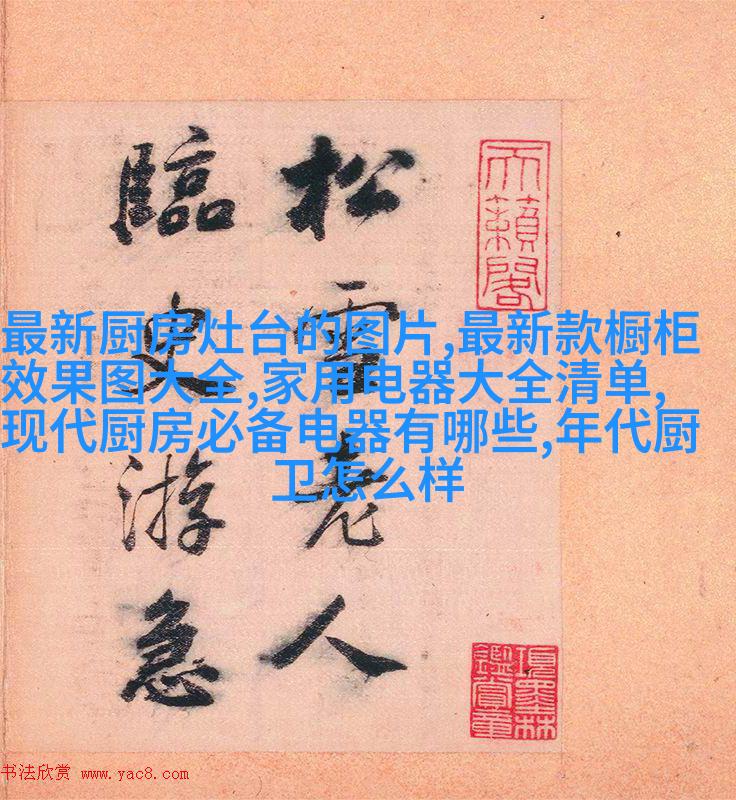 松雪老人
臨史游急
天籟閣
項墨林
鑑賞章
最新厨房灶台的图片,最新款橱柜
效果图大全,家用电器大全清单,
现代厨房必备电器有哪些,年代厨
卫怎么样
书法欣赏 www.yac8.com